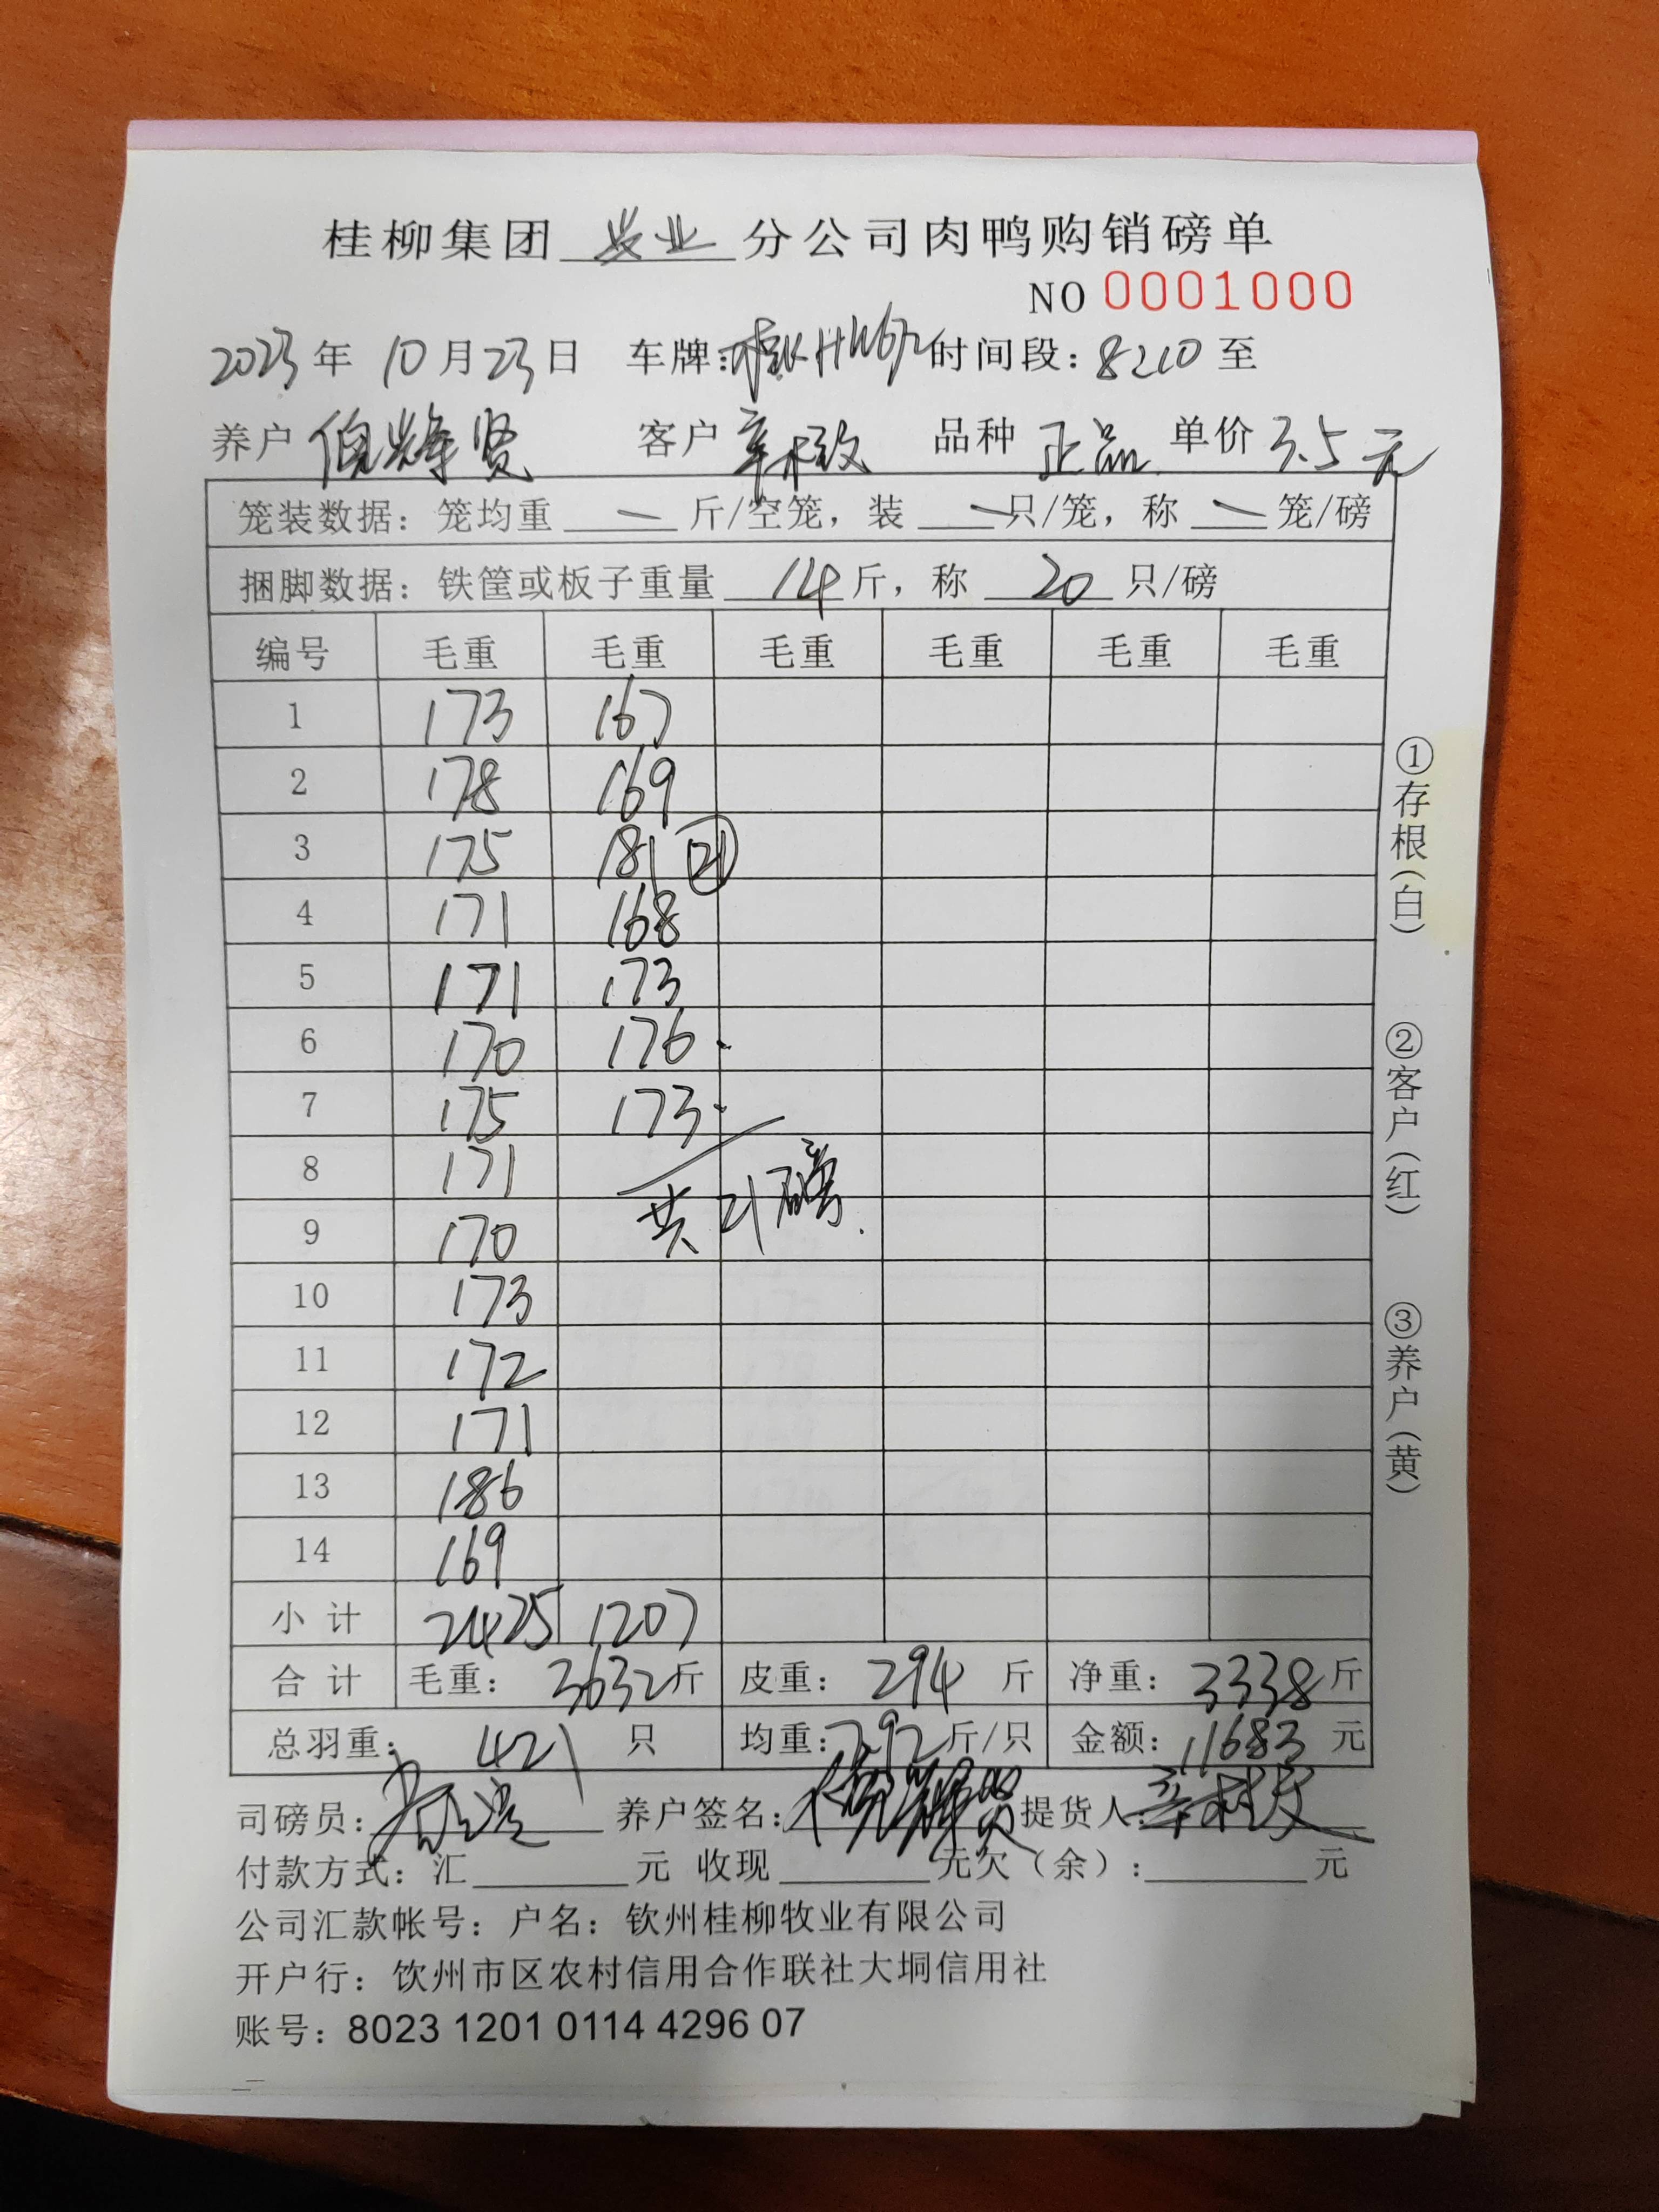 桂柳集团 牧业 分公司肉鸭购销磅单
NO 0001000
2023年 10月23日 车牌: 时间段: 8:10 至
养户 贤 客户 辛 品种 正品 单价 3.5元
笼装数据: 笼均重 — 斤/空笼, 装 — 只/笼, 称 — 笼/磅
捆脚数据: 铁筐或板子重量 14 斤, 称 20 只/磅
编号 毛重 毛重 毛重 毛重 毛重 毛重
1 173 167
2 178 169
3 175 181 21
4 171 168
5 171 173
6 170 176
7 175 173
8 171
共21磅
9 170
10 173
11 172
12 171
13 186
14 169
小计 2425 1207
合计 毛重: 3632斤 皮重: 294 斤 净重: 3338斤
总羽重: 421 只 均重: 7.92斤/只 金额: 11683 元
司磅员: 养户签名: 提货人:
付款方式: 汇 元 收现 元欠(余): 元
公司汇款帐号: 户名: 钦州桂柳牧业有限公司
开户行: 钦州市区农村信用合作联社大垌信用社
账号: 8023 1201 0114 4296 07
①存根(白)
②客户(红)
③养户(黄)